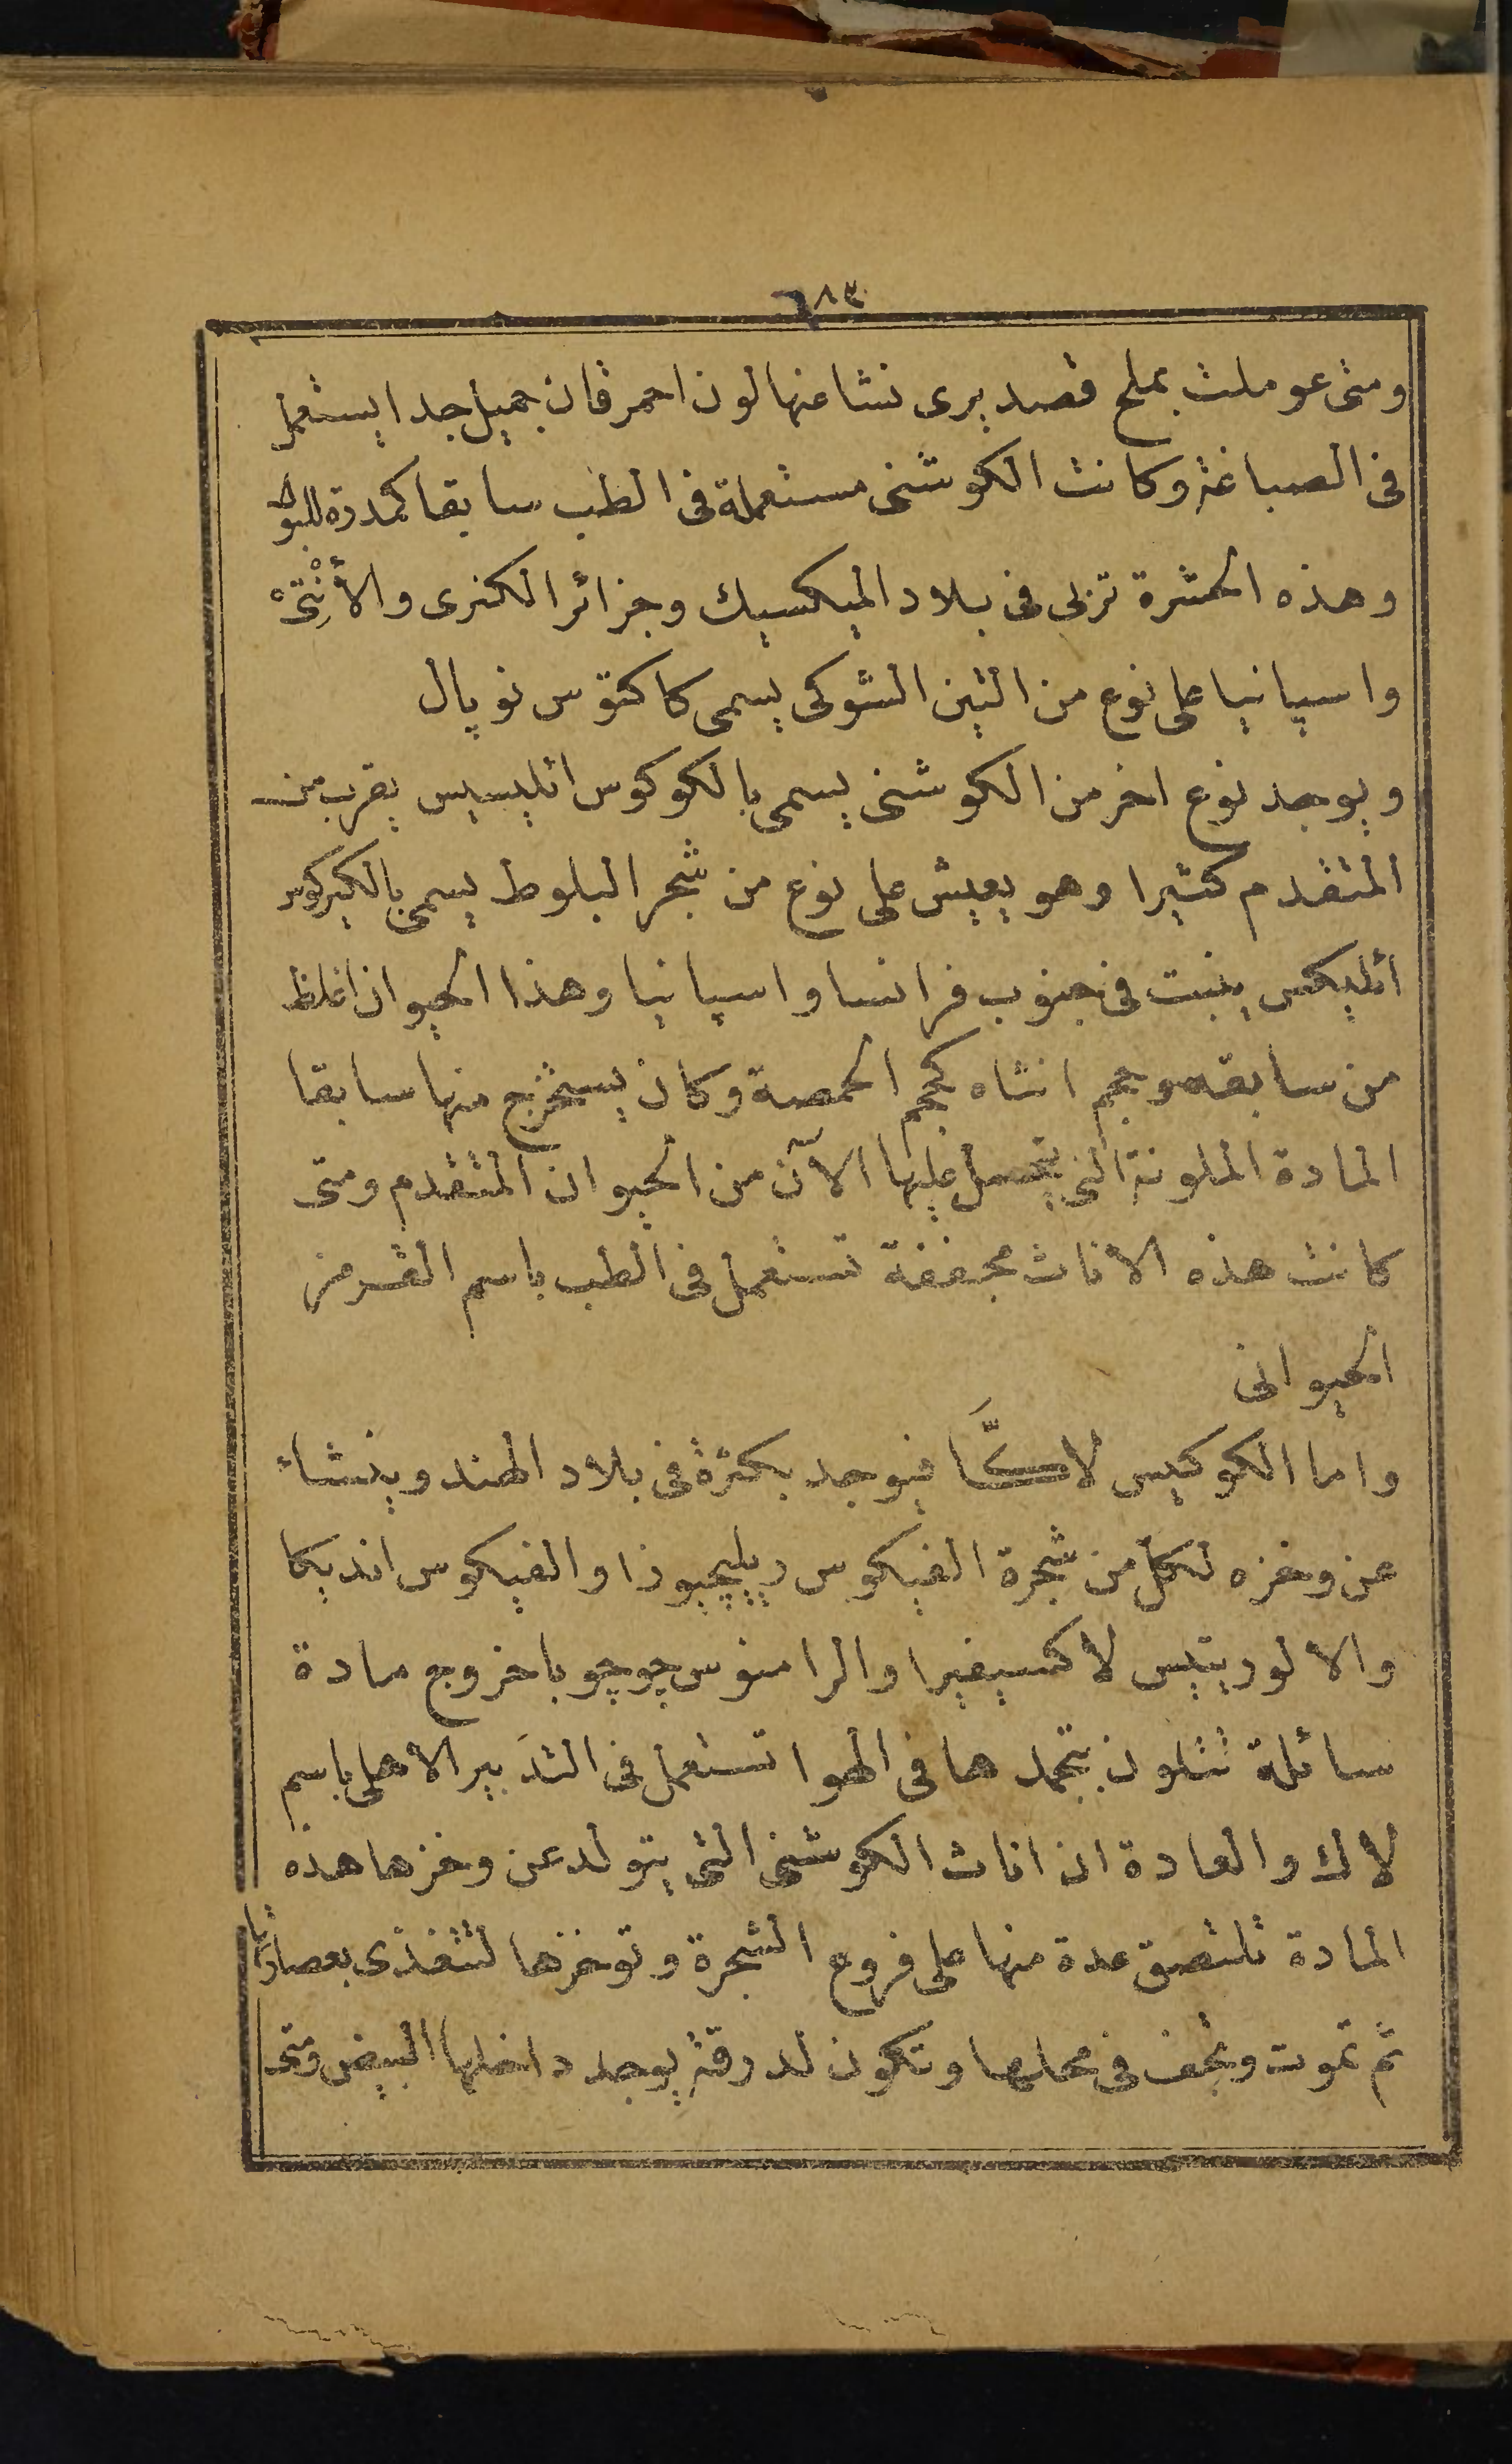 ٦٨٣
ومتى عوملت بملح قصديرى نشا عنها لون احمر قان جميل جدا يستعمل
فى الصباغة وكانت الكوشنى مستعملة فى الطب سابقا كمدرة للبول
وهذه الحشرة تربى فى بلاد الميكسيك وجزائر الكنرى والأنْتِىّه
واسپانيا على نوع من التين الشوكى يسمى كاكتوس نوپال
ويوجد نوع اخر من الكوشنى يسمى بالكوكوس ائليسيس يقرب من
المتقدم كثيرا وهو يعيش على نوع من شجر البلوط يسمى بالكيركوس
ائليكس ينبت فى جنوب فرانسا واسپانيا وهذا الحيوان اغلظ
من سابقه وحجم انثاه كحجم الحمصة وكان يستخرج منها سابقا
المادة الملونة التى يتحصل عليها الآن من الحيوان المتقدم ومتى
كانت هذه الاناث مجففة تستعمل فى الطب باسم القرمز
الحيوانى
واما الكوكيس لاكَّا فيوجد بكثرة فى بلاد الهند وينشاء
عن وخزه لكل من شجرة الفيكوس ريليچيوزا والفيكوس انديكا
والالوريتيس لاكسيفيرا والرامنوس چوچوبا خروج مادة
سائلة تتلون بتجمدها فى الهوا تستعمل فى التدبير الاهلى باسم
لاك والعادة ان اناث الكوشنى التى يتولد عن وخزها هذه
المادة تلتصق عدة منها على فروع الشجرة وتوخزها لتتغذى بعصارتها
ثم تموت وتجف فى محلها وتكون لدرقة يوجد داخلها البيض ومتى